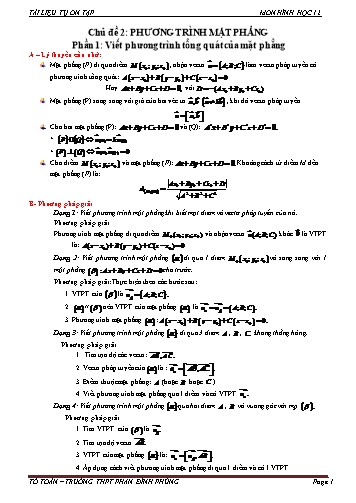 TÀI LIỆU TỰ ÔN TẬP MÔN HÌNH HỌC 12
Chủ đề 2: PHƯƠNG TRÌNH MẶT PHẲNG
Phần 1: Viết phương trình tổng quát của mặt phẳng
A – Lý thuyết cần nhớ:
Mặt phẳng (P) đi qua điểm M(x₀; y₀; z₀), nhận vectơ n = (A; B; C) làm vectơ pháp tuyến có
phương trình tổng quát: A(x−x₀)+B(y−y₀)+C(z−z₀)=0
Hay Ax+By+Cz+D=0, với D=−(Ax₀+By₀+Cz₀)
Mặt phẳng (P) song song với giá của hai vectơ
khi đó vectơ pháp tuyến
Cho hai mặt phẳng (P): Ax+By+Cz+D=0 và (Q): A'x+B'y+C'z+D'=0.
Cho điểm M(x₀; y₀; z₀) và mặt phẳng (P): Ax+By+Cz+D=0. Khoảng cách từ điểm M đến
mặt phẳng (P) là:
B- Phương pháp giải
Dạng 1: Viết phương trình mặt phẳng khi biết một điểm và vectơ pháp tuyến của nó.
Phương pháp giải
Phương trình mặt phẳng đi qua điểm M₀(x₀; y₀; z₀) và nhận vectơ n(A; B; C) khác 0 là VTPT
là: A(x−x₀)+B(y−y₀)+C(z−z₀)=0
Dạng 2: Viết phương trình mặt phẳng (α) đi qua 1 điểm M₀(x₀; y₀; z₀) và song song với 1
mặt phẳng (β): Ax+By+Cz+D=0 cho trước.
Phương pháp giải: Thực hiện theo các bước sau:
1. VTPT của (β) là n = (A; B; C).
2. (α) // (β) nên VTPT của mặt phẳng (α) là n = (A; B; C).
3. Phương trình mặt phẳng (α): A(x−x₀)+B(y−y₀)+C(z−z₀)=0.
Dạng 3: Viết phương trình mặt phẳng (α) đi qua 3 điểm A, B, C không thẳng hàng.
Phương pháp giải
1. Tìm tọa độ các vectơ: AB, AC.
2. Vectơ pháp tuyến của (α) là: n = [AB, AC].
3. Điểm thuộc mặt phẳng: A (hoặc B hoặc C)
4. Viết phương trình mặt phẳng qua 1 điểm và có VTPT n.
Dạng 4: Viết phương trình mặt phẳng (α) qua hai điểm A, B và vuông góc với mp (β).
Phương pháp giải
1. Tìm VTPT của (β) là n
2. Tìm tọa độ vectơ AB.
3. VTPT của mặt phẳng (α) là:
4. Áp dụng cách viết phương trình mặt phẳng đi qua 1 điểm và có 1 VTPT
TỔ TOÁN – TRƯỜNG THPT PHAN ĐÌNH PHÙNG Page 1